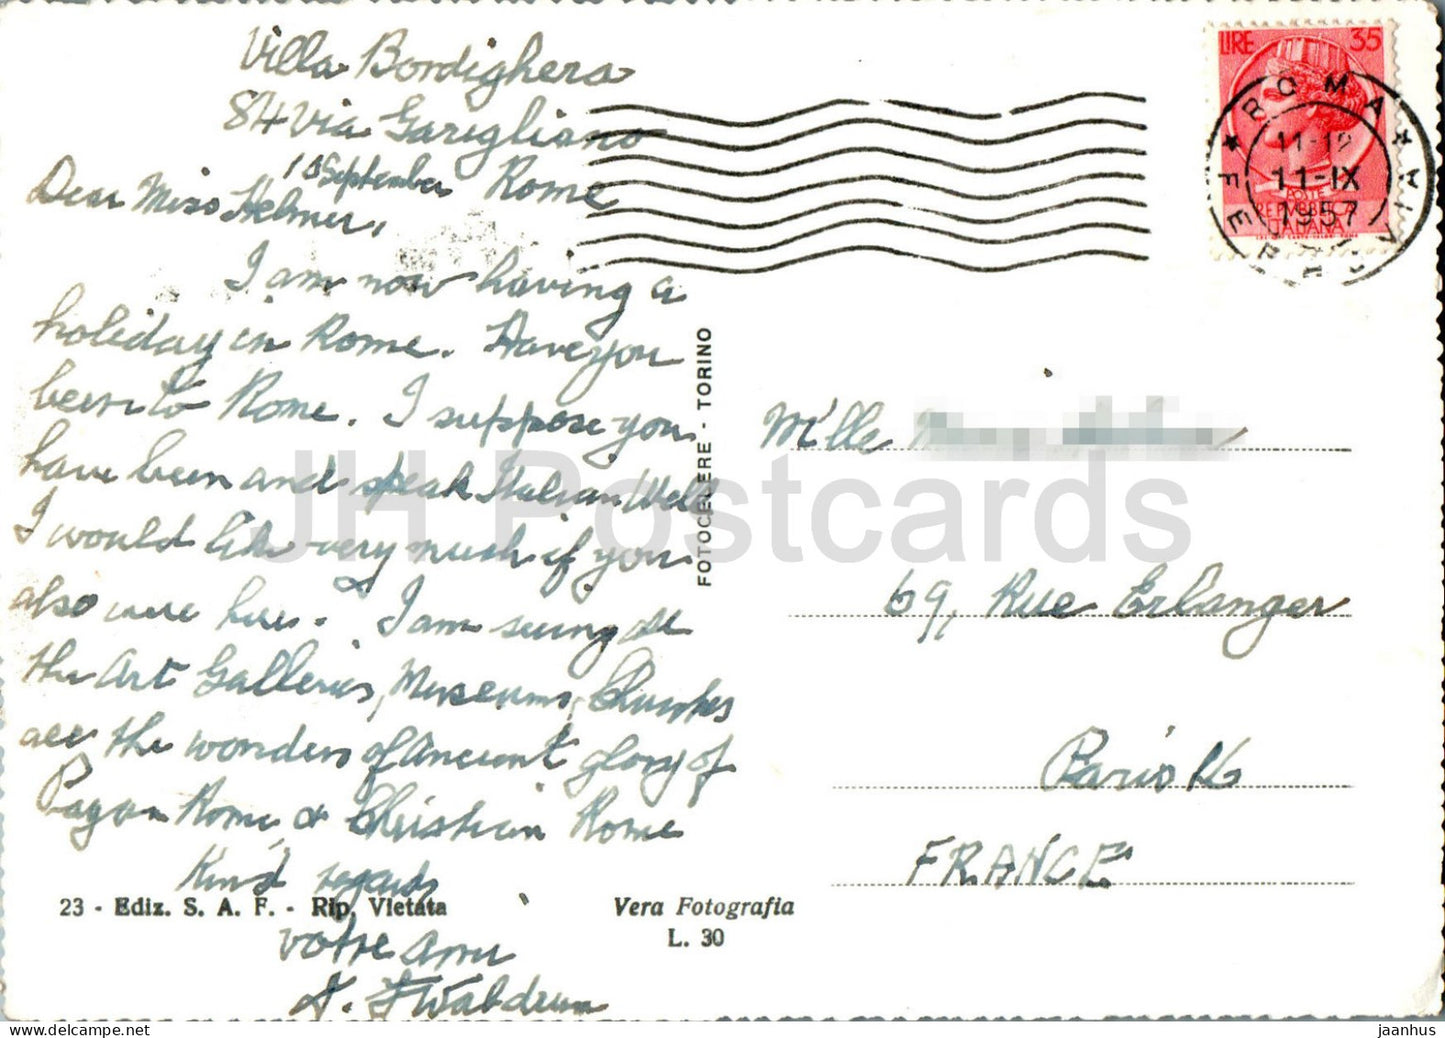 Villa Bordighera
84 Via Garigliano
10 September Rome
Dear Miss Helmer,
I am now having a
holiday in Rome. Have you
been to Rome. I suppose you
have been and speak Italian Well
I would like very much if you
also were here. I am seeing all
the Art Galleries, Museums, Churches
all the wonders of Ancient glory of
Pagan Rome & Christian Rome
Kind regards
votre ami
LIRE 35
POSTE
REPVBBLICA
ITALIANA
ROMA
11-IX
1957
M'lle
69, Rue Erlanger
Paris 16
FRANCE
FOTOCELERE - TORINO
23 - Ediz. S. A. F. - Rip. Vietata
Vera Fotografia
L. 30
JH Postcards
jaanhus
www.delcampe.net